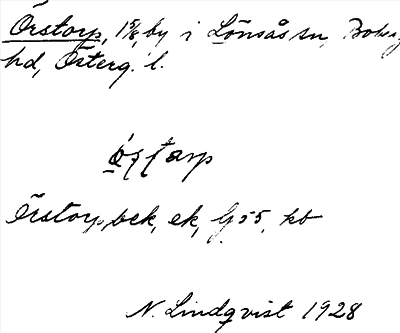 Örstorp, 15/8, by i Lönsås sn, Bobergs
hd, Österg. l.
Örstorp, bek, ek, G 55, kb
N. Lindqvist 1928